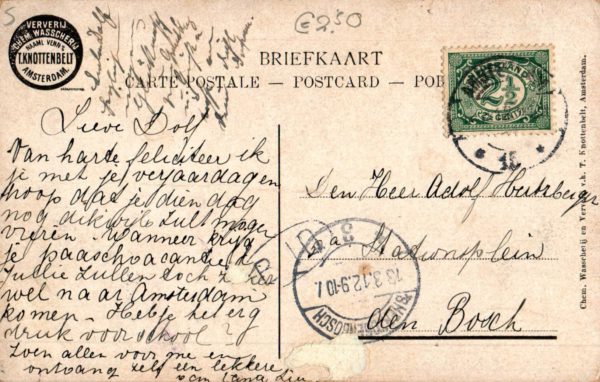 VERVERIJ
CHEM. WASSCHERIJ
NAAML. VENN.
T. KNOTTENBELT
AMSTERDAM.
€2,50
BRIEFKAART
CARTE POSTALE — POSTCARD —
Lieve Dolf
Van harte feliciteer ik
je met je verjaardag en
hoop dat je dien dag
nog dikwijls zult mogen
vieren. Wanneer krijg
je paaschvacantie?
Jullie zullen toch z
wel naar Amsterdam
komen. Heb je het erg
druk voor school?
Zoen allen voor me en
ontvang zelf een lekkere
van tante
NEDERLAND
2½
CENT
15
Den Heer Adolf Hertzberger
Stationsplein
den Bosch
'S HERTOGENBOSCH
13.3.12.9-10
Chem. Wasscherij en Ververij v.h. T. Knottenbelt, Amsterdam.